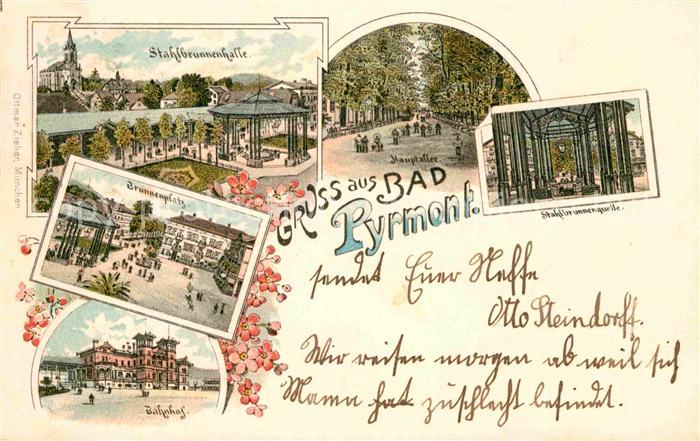 Stahlbrunnenhalle.
Hauptallee
Stahlbrunnenquelle.
Brunnenplatz
Bahnhof.
Ottmar Zieher, München
Gruss aus BAD
Pyrmont.
sendet Euer Neffe
Otto Steindorff.
Wir reisen morgen ab weil sich
Mama hat zuschlecht befindet.